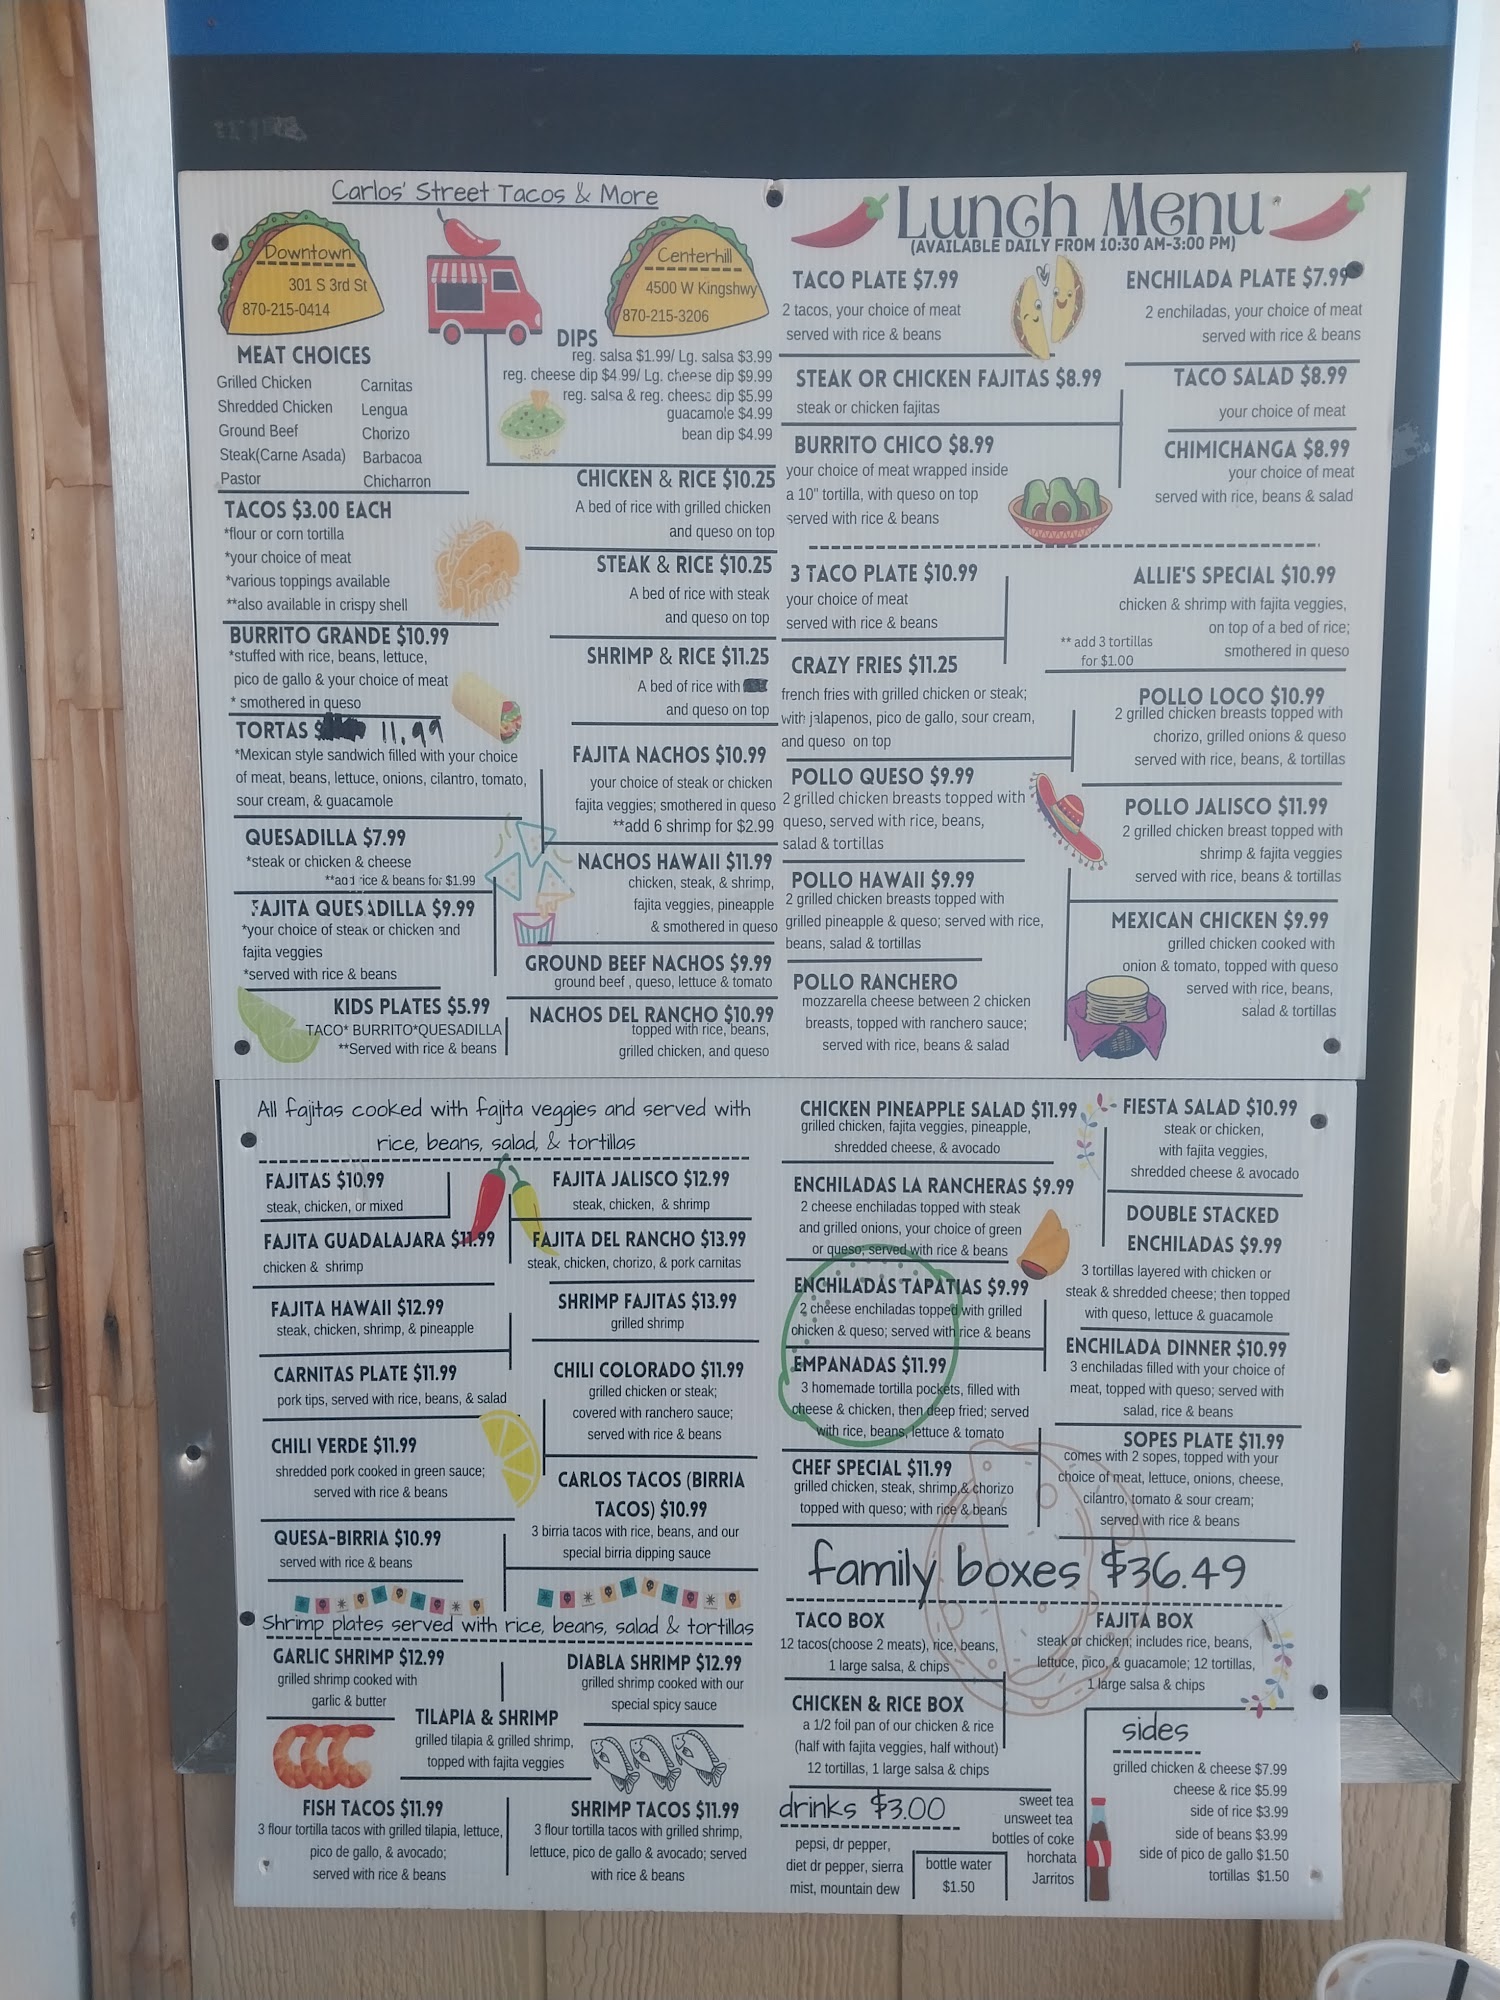 Carlos' Street Tacos & More
Downtown
301 S 3rd St
870-215-0414
Centerhill
4500 W Kingshwy
870-215-3206
MEAT CHOICES
Grilled Chicken
Shredded Chicken
Ground Beef
Steak(Carne Asada)
Pastor
Carnitas
Lengua
Chorizo
Barbacoa
Chicharron
TACOS $3.00 EACH
*flour or corn tortilla
*your choice of meat
*various toppings available
**also available in crispy shell
BURRITO GRANDE $10.99
*stuffed with rice, beans, lettuce,
pico de gallo & your choice of meat
* smothered in queso
TORTAS $ 11.99
*Mexican style sandwich filled with your choice
of meat, beans, lettuce, onions, cilantro, tomato,
sour cream, & guacamole
QUESADILLA $7.99
*steak or chicken & cheese
**add rice & beans for $1.99
FAJITA QUESADILLA $9.99
*your choice of steak or chicken and
fajita veggies
*served with rice & beans
KIDS PLATES $5.99
TACO* BURRITO*QUESADILLA
**Served with rice & beans
DIPS
reg. salsa $1.99/ Lg. salsa $3.99
reg. cheese dip $4.99/ Lg. cheese dip $9.99
reg. salsa & reg. cheese dip $5.99
guacamole $4.99
bean dip $4.99
CHICKEN & RICE $10.25
A bed of rice with grilled chicken
and queso on top
STEAK & RICE $10.25
A bed of rice with steak
and queso on top
SHRIMP & RICE $11.25
A bed of rice with
and queso on top
FAJITA NACHOS $10.99
your choice of steak or chicken
fajita veggies; smothered in queso
**add 6 shrimp for $2.99
NACHOS HAWAII $11.99
chicken, steak, & shrimp,
fajita veggies, pineapple
& smothered in queso
GROUND BEEF NACHOS $9.99
ground beef , queso, lettuce & tomato
NACHOS DEL RANCHO $10.99
topped with rice, beans,
grilled chicken, and queso
Lunch Menu
(AVAILABLE DAILY FROM 10:30 AM-3:00 PM)
TACO PLATE $7.99
2 tacos, your choice of meat
served with rice & beans
ENCHILADA PLATE $7.99
2 enchiladas, your choice of meat
served with rice & beans
STEAK OR CHICKEN FAJITAS $8.99
steak or chicken fajitas
TACO SALAD $8.99
your choice of meat
BURRITO CHICO $8.99
your choice of meat wrapped inside
a 10" tortilla, with queso on top
served with rice & beans
CHIMICHANGA $8.99
your choice of meat
served with rice, beans & salad
3 TACO PLATE $10.99
your choice of meat
served with rice & beans
ALLIE'S SPECIAL $10.99
chicken & shrimp with fajita veggies,
on top of a bed of rice;
smothered in queso
** add 3 tortillas
for $1.00
CRAZY FRIES $11.25
french fries with grilled chicken or steak;
with jalapenos, pico de gallo, sour cream,
and queso on top
POLLO LOCO $10.99
2 grilled chicken breasts topped with
chorizo, grilled onions & queso
served with rice, beans, & tortillas
POLLO QUESO $9.99
2 grilled chicken breasts topped with
queso, served with rice, beans,
salad & tortillas
POLLO JALISCO $11.99
2 grilled chicken breast topped with
shrimp & fajita veggies
served with rice, beans & tortillas
POLLO HAWAII $9.99
2 grilled chicken breasts topped with
grilled pineapple & queso; served with rice,
beans, salad & tortillas
MEXICAN CHICKEN $9.99
grilled chicken cooked with
onion & tomato, topped with queso
served with rice, beans,
salad & tortillas
POLLO RANCHERO
mozzarella cheese between 2 chicken
breasts, topped with ranchero sauce;
served with rice, beans & salad
All fajitas cooked with fajita veggies and served with
rice, beans, salad, & tortillas
FAJITAS $10.99
steak, chicken, or mixed
FAJITA JALISCO $12.99
steak, chicken, & shrimp
FAJITA GUADALAJARA $11.99
chicken & shrimp
FAJITA DEL RANCHO $13.99
steak, chicken, chorizo, & pork carnitas
FAJITA HAWAII $12.99
steak, chicken, shrimp, & pineapple
SHRIMP FAJITAS $13.99
grilled shrimp
CARNITAS PLATE $11.99
pork tips, served with rice, beans, & salad
CHILI COLORADO $11.99
grilled chicken or steak;
covered with ranchero sauce;
served with rice & beans
CHILI VERDE $11.99
shredded pork cooked in green sauce;
served with rice & beans
CARLOS TACOS (BIRRIA
TACOS) $10.99
3 birria tacos with rice, beans, and our
special birria dipping sauce
QUESA-BIRRIA $10.99
served with rice & beans
Shrimp plates served with rice, beans, salad & tortillas
GARLIC SHRIMP $12.99
grilled shrimp cooked with
garlic & butter
DIABLA SHRIMP $12.99
grilled shrimp cooked with our
special spicy sauce
TILAPIA & SHRIMP
grilled tilapia & grilled shrimp,
topped with fajita veggies
FISH TACOS $11.99
3 flour tortilla tacos with grilled tilapia, lettuce,
pico de gallo, & avocado;
served with rice & beans
SHRIMP TACOS $11.99
3 flour tortilla tacos with grilled shrimp,
lettuce, pico de gallo & avocado; served
with rice & beans
CHICKEN PINEAPPLE SALAD $11.99
grilled chicken, fajita veggies, pineapple,
shredded cheese, & avocado
FIESTA SALAD $10.99
steak or chicken,
with fajita veggies,
shredded cheese & avocado
ENCHILADAS LA RANCHERAS $9.99
2 cheese enchiladas topped with steak
and grilled onions, your choice of green
or queso; served with rice & beans
DOUBLE STACKED
ENCHILADAS $9.99
3 tortillas layered with chicken or
steak & shredded cheese; then topped
with queso, lettuce & guacamole
ENCHILADAS TAPATIAS $9.99
2 cheese enchiladas topped with grilled
chicken & queso; served with rice & beans
ENCHILADA DINNER $10.99
3 enchiladas filled with your choice of
meat, topped with queso; served with
salad, rice & beans
EMPANADAS $11.99
3 homemade tortilla pockets, filled with
cheese & chicken, then deep fried; served
with rice, beans, lettuce & tomato
SOPES PLATE $11.99
comes with 2 sopes, topped with your
choice of meat, lettuce, onions, cheese,
cilantro, tomato & sour cream;
served with rice & beans
CHEF SPECIAL $11.99
grilled chicken, steak, shrimp,& chorizo
topped with queso; with rice & beans
family boxes $36.49
TACO BOX
12 tacos(choose 2 meats), rice, beans,
1 large salsa, & chips
FAJITA BOX
steak or chicken; includes rice, beans,
lettuce, pico, & guacamole; 12 tortillas,
1 large salsa & chips
CHICKEN & RICE BOX
a 1/2 foil pan of our chicken & rice
(half with fajita veggies, half without)
12 tortillas, 1 large salsa & chips
drinks $3.00
pepsi, dr pepper,
diet dr pepper, sierra
mist, mountain dew
bottle water
$1.50
sweet tea
unsweet tea
bottles of coke
horchata
Jarritos
sides
grilled chicken & cheese $7.99
cheese & rice $5.99
side of rice $3.99
side of beans $3.99
side of pico de gallo $1.50
tortillas $1.50